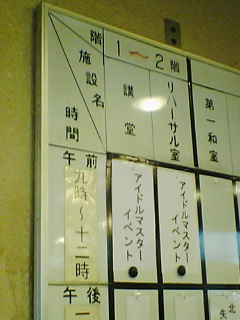 階
施設名
時間
1～2階
講堂
リハーサル室
第一和室
午前
九時～十二時
アイドルマスター
イベント
アイドルマスター
イベント
午後
北